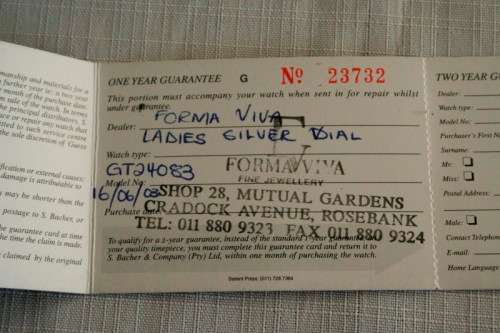 manship and materials for a
further year ie: a two year
the month of the purchase date.
sale of the watch. In terms
the principal distributors, S.
ce or repairs any watch that
itted to such service centre
sole discretion of Guess
ification or external causes:
damage is attributable to
may be shorter than the
postage to S. Bacher, or
the guarantee card at time
the time the claim is made.
claimed by the original
ONE YEAR GUARANTEE G No 23732
This portion must accompany your watch when sent in for repair whilst
under guarantee.
Dealer: FORMA VIVA
LADIES SILVER DIAL
Watch type:
FORMA VIVA
GT24083
FINE JEWELLERY
Model No:
16/06/03
SHOP 28, MUTUAL GARDENS
Purchase date
CRADOCK AVENUE, ROSEBANK
TEL: 011 880 9323 FAX 011 880 9324
To qualify for a 2-year guarantee, instead of the standard 1-year guarantee on
your quality timepiece, you must complete this guarantee card and return it to
S. Bacher & Company (Pty) Ltd, within one month of purchasing the watch.
TWO YEAR GU
Dealer:
Watch type:
Model No:
Purchaser's First N
Surname:
Mr:
Miss:
Postal Address:
Male:
Contact Telephone
E-mail:
Home Language